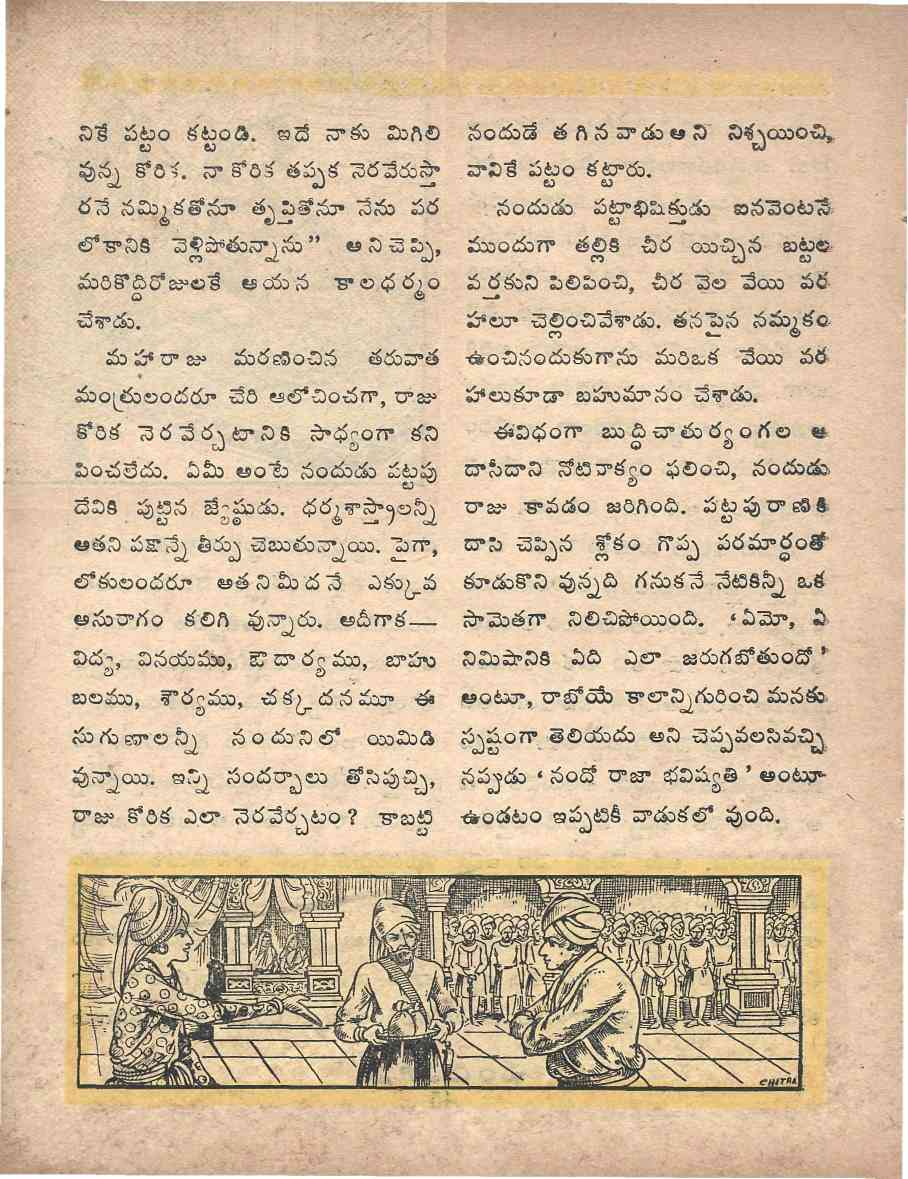 నికే పట్టం కట్టండి. ఇదే నాకు మిగిలి
వున్న కోరిక. నా కోరిక తప్పక నెరవేరుస్తా
రనే నమ్మికతోనూ తృప్తితోనూ నేను పర
లోకానికి వెళ్లిపోతున్నాను” అని చెప్పి,
మరికొద్దిరోజులకే ఆయన కాలధర్మం
చేశాడు.
మహారాజు మరణించిన తరువాత
మంత్రులందరూ చేరి ఆలోచించగా, రాజు
కోరిక నెరవేర్చటానికి సాధ్యంగా కని
పించలేదు. ఏమీ అంటే నందుడు పట్టపు
దేవికి పుట్టిన జ్యేష్ఠుడు. ధర్మశాస్త్రాలన్నీ
అతని పక్షాన్నే తీర్పు చెబుతున్నాయి. పైగా,
లోకులందరూ అతనిమీదనే ఎక్కువ
అనురాగం కలిగి వున్నారు. అదీగాక—
విద్య, వినయము, ఔదార్యము, బాహు
బలము, శౌర్యము, చక్కదనమూ ఈ
సుగుణాలన్నీ నందునిలో యిమిడి
వున్నాయి. ఇన్ని సందర్భాలు తోసిపుచ్చి,
రాజు కోరిక ఎలా నెరవేర్చటం? కాబట్టి
నందుడే తగినవాడు అని నిశ్చయించి,
వానికే పట్టం కట్టారు.
నందుడు పట్టాభిషిక్తుడు ఐనవెంటనే
ముందుగా తల్లికి చీర యిచ్చిన బట్టల
వర్తకుని పిలిపించి, చీర వెల వేయి వర
హాలూ చెల్లించివేశాడు. తనపైన నమ్మకం
ఉంచినందుకుగాను మరిఒక వేయి వర
హాలుకూడా బహుమానం చేశాడు.
ఈవిధంగా బుద్ధిచాతుర్యంగల ఆ
దాసిదాని నోటివాక్యం ఫలించి, నందుడు
రాజు కావడం జరిగింది. పట్టపురాణికి
దాసి చెప్పిన శ్లోకం గొప్ప పరమార్థంతో
కూడుకొని వున్నది గనుకనే నేటికిన్నీ ఒక
సామెతగా నిలిచిపోయింది. ‘ఏమో, ఏ
నిమిషానికి ఏది ఎలా జరుగబోతుందో’
అంటూ, రాబోయే కాలాన్నిగురించి మనకు
స్పష్టంగా తెలియదు అని చెప్పవలసివచ్చి
నప్పుడు ‘నందో రాజా భవిష్యతి’ అంటూ
ఉండటం ఇప్పటికీ వాడుకలో వుంది.
CHITRA